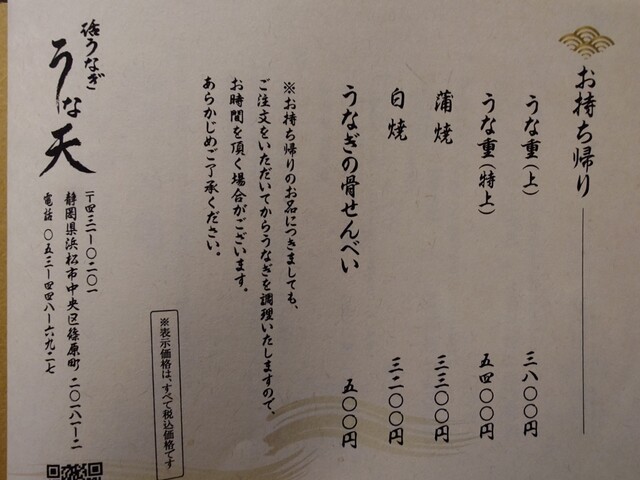 お持ち帰り
うな重(上) 三八〇〇円
うな重(特上) 五四〇〇円
蒲焼 三三〇〇円
白焼 三二〇〇円
うなぎの骨せんべい 五〇〇円
※お持ち帰りのお品につきましても、
ご注文をいただいてからうなぎを調理いたしますので、
お時間を頂く場合がございます。
あらかじめご了承ください。
※表示価格は、すべて税込価格です
活うなぎ
うな天
〒四三一-〇二〇一
静岡県浜松市中央区篠原町二〇一八一-二
電話 〇五三-四四八-六九二七